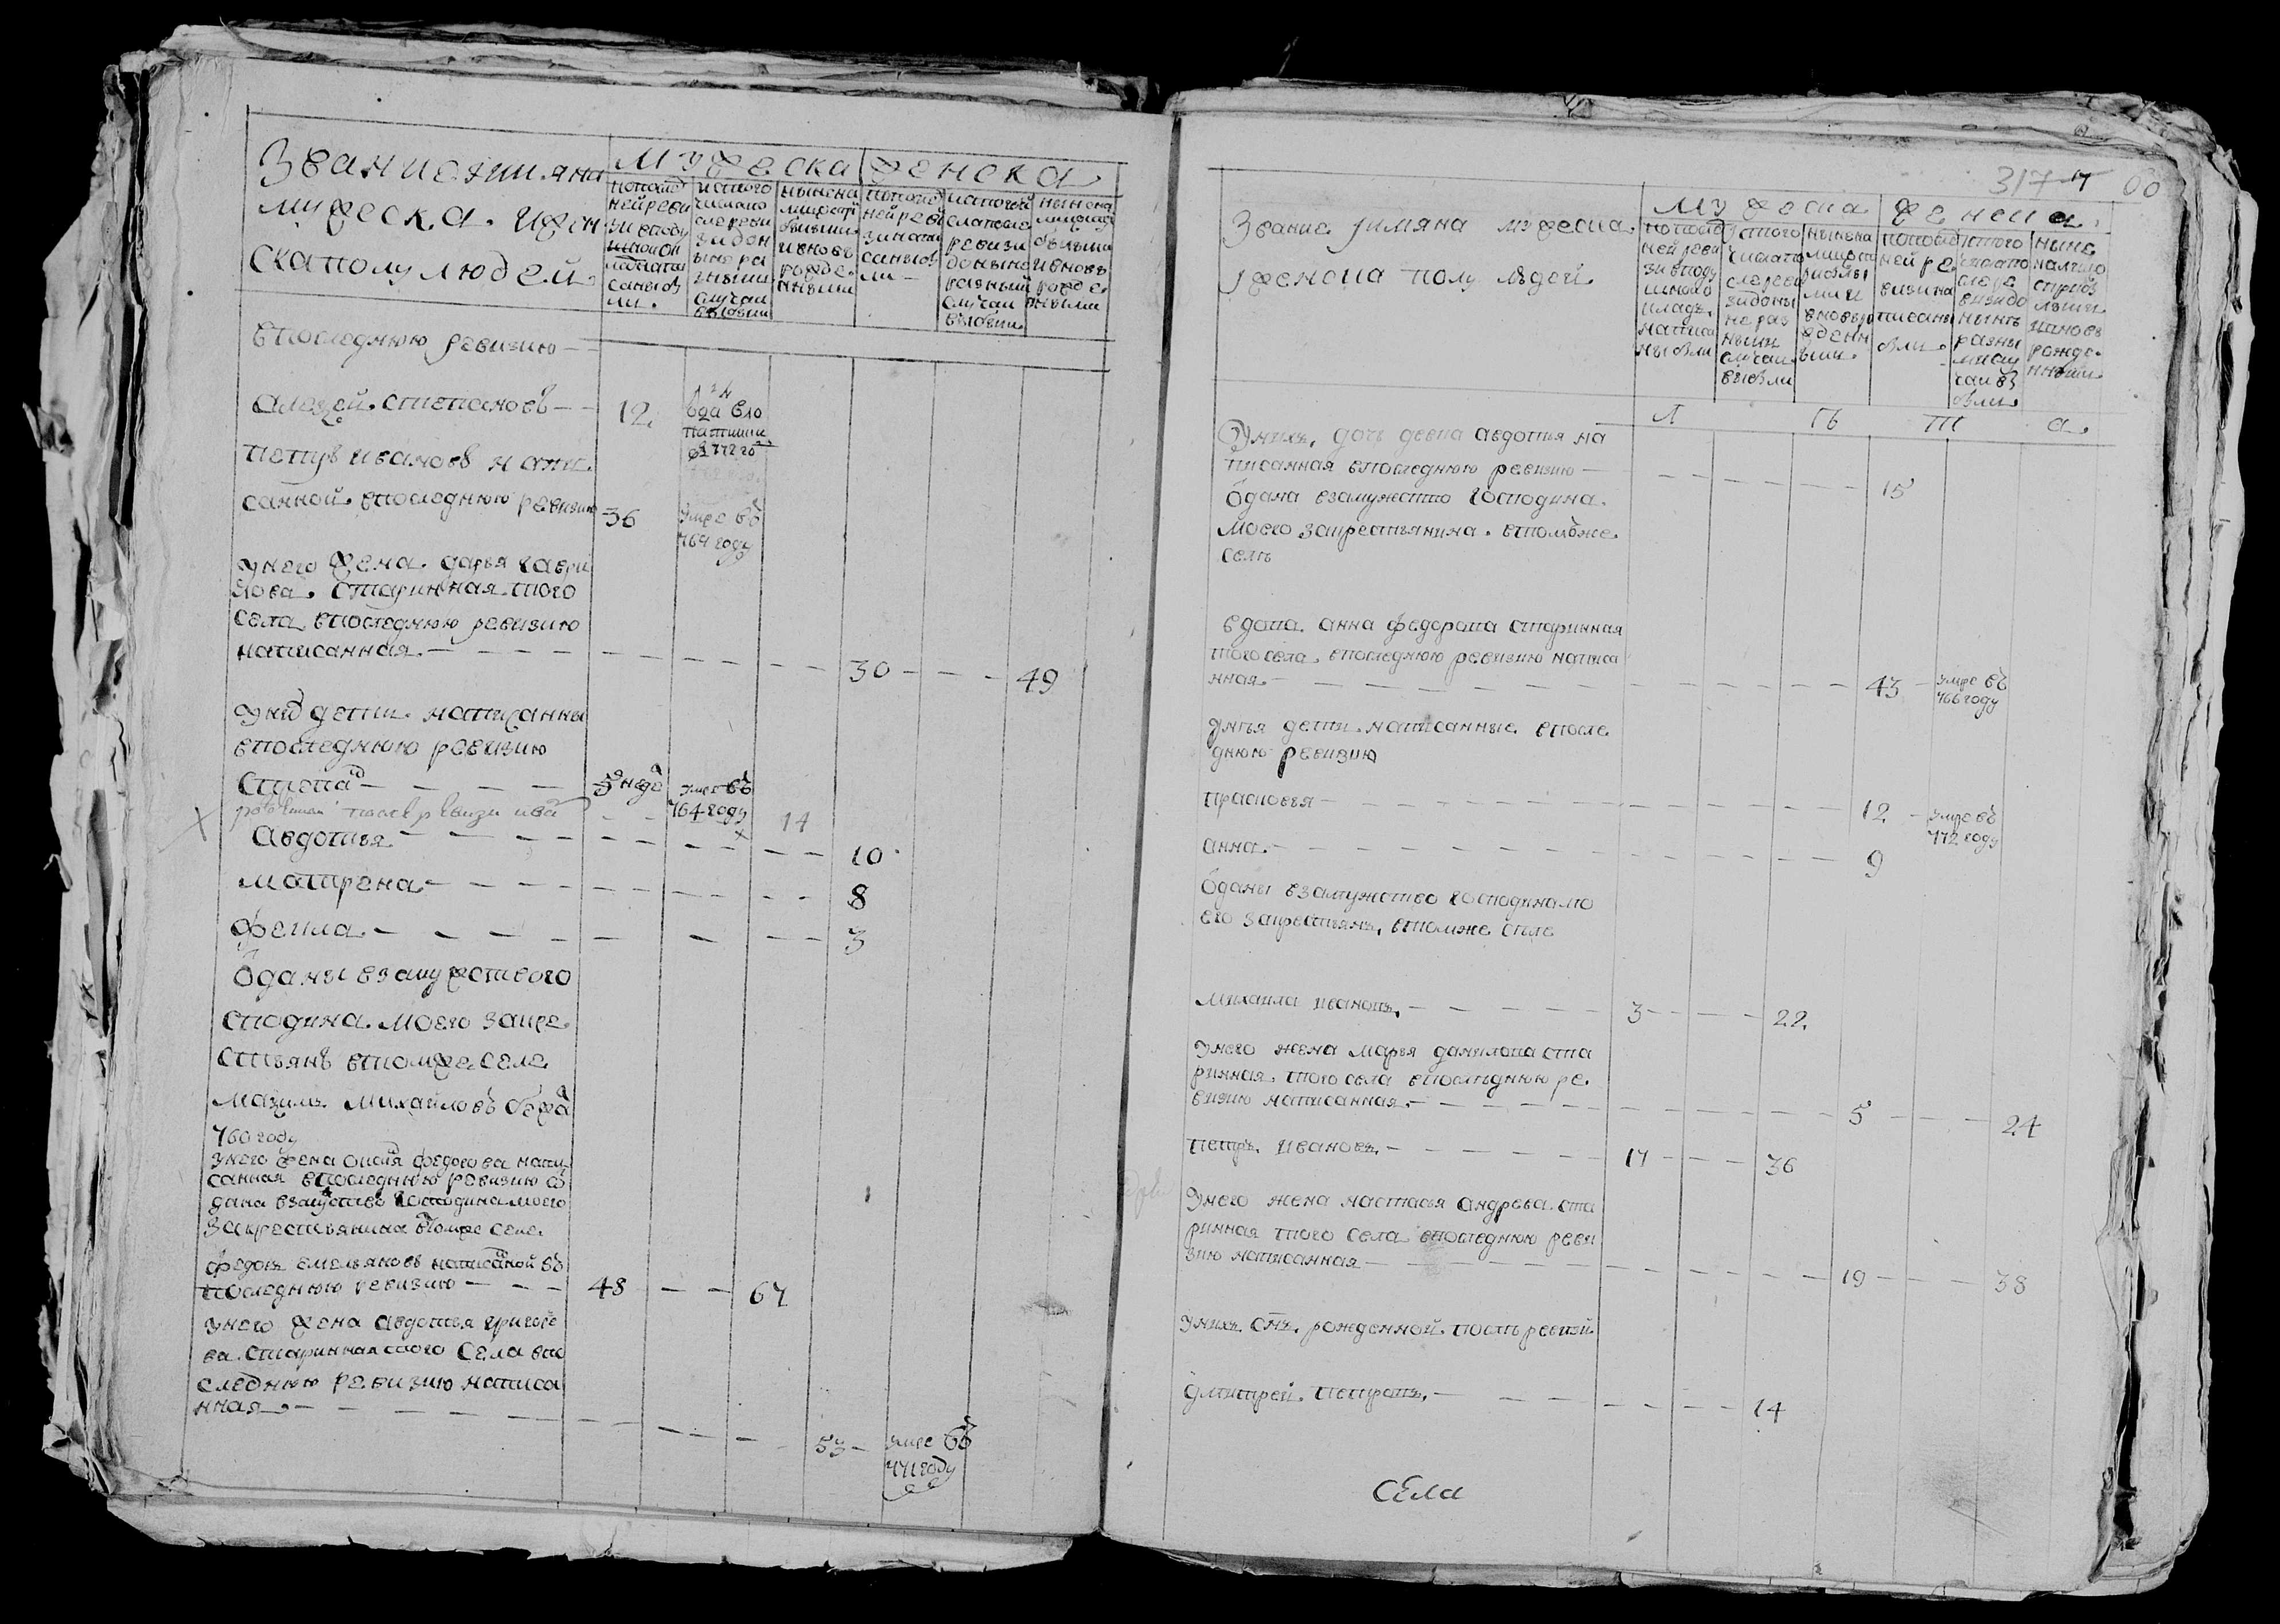 Звание иимяна
мужеска. ижен
скаполу людей.
мужеска
женска
попослед
нейреви
зи вподу
шномой
кладнапи
саныбы
ли.
истого
числапо
слереви
зидон
ынера
зными
случаи
выбыли
нынена
лицосп
рибылыми
ивновь
рожде.
нными
попослед
нейреви
зинапи
саныбы
ли
истогочи
слапосле
ревизи
доныне
разными
случаи
выбыли
нынена
лицоспри
былыми
ивновь
рожде
нными
впоследнюю ревизию
алезей. степановъ
12.
ода вло
паншин
въ 772 го
петръ ивановъ напи
санной. впоследнюю ревизию
36
умре въ
764 году
унего жена. дарья гаври
лова. старинная. того
села впоследнюю ревизию
написанная.
30
49
унид дети. написанны
впоследнюю ревизию
степа
5 неде
умре въ
764 году
рожденной после ревизи ива
14
авдотья
10
матрена
8
фекла
3
ѿданы взамужствого
сподина. моего закре
стьянъ втомже. селе
мазимъ михайловъ бежа
760 году
унего жена фед орова напи
санная впоследнюю ревизию ѿ
дана взамужство господинамоего
закрестьянина втомже селе.
федоръ емельяновъ написаной въ
последнюю ревизию
48
67
унего жена авдотья григорье
ва. старинная того села впо
следнюю ревизию написа
нная
53
умре въ
771 году
317
60
Звание јимяна мужеска.
јженска полу людей
мужеска
женска
попослед
ней реви
зивподу
шномо
кладъ.
написа
ны были
јстого
числапо
слереви
зидоны
нераз
ными
случаи
выбыли
нынена
лицопо
рибылы
мии
вновьро
жденн
ыми.
попослед
ней ре.
визина
писаны
были.
јстого
числапо
слере
визидо
нынь
разны
мислу
чаивы
были
ныне
налицо
сприбы
лыми
ивновь
рожде.
нными
Л Ѣ Т а.
Унихъ. дочь девка авдотья на
писанная впоследнюю ревизию
15
ѿдана взамужество господина.
моего закрестьянина. втомже.
селѣ
вдова. анна федорова старинная
того села. впоследнюю ревизию написа
нная
43
умре въ
766 году
унѣя дети. написанные впосле
днюю ревизию
прасковья
12
умре въ
772 году
анна.
9
ѿданы взамужство господинамо
его закрестьянъ, втомже сѣле
михаила ивановъ.
3
22.
унего жена марья данилова ста
ринная. того села впослѣднюю ре.
визию написанная.
5
24
петръ. ивановъ.
17
36
унего жена настасья андрева. ста
ринная того села впоследнюю реви
зию написанная
19
38
унихъ. сынъ. рожденной. послѣ ревизи
дмитрей. петровъ.
14
сЕла